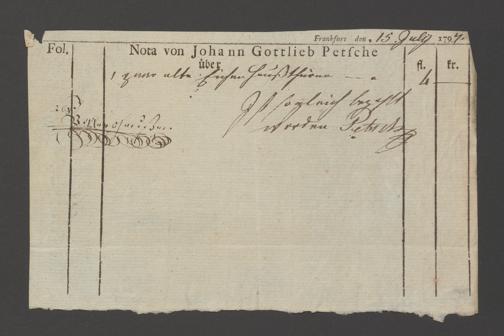 Frankfurt den 15 July 1797.
Fol. Nota von Johann Gottlieb Petsche fl. kr.
über
1 paar alte Eichen Haußthüren 4 —
Ist sogleich bezahlt
worden Petsche